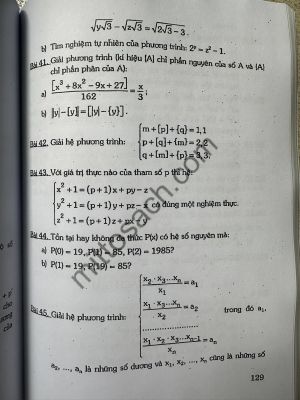 √y√3 − √z√3 = √2√3 − 3.
b) Tìm nghiệm tự nhiên của phương trình: 2ʸ = z² − 1.
Bài 41. Giải phương trình (kí hiệu [A] chỉ phần nguyên của số A và {A}
chỉ phần phân của A):
a) [x³ + 8x² − 9x + 27] / 162 = x / 3.
b) |y| − [y] = [|y| − {y}].
Bài 42. Giải hệ phương trình:
m + [p] + {q} = 1,1
p + [q] + {m} = 2,2
q + [m] + {p} = 3,3.
Bài 43. Với giá trị thực nào của tham số p thì hệ:
x² + 1 = (p + 1)x + py − z
y² + 1 = (p + 1)y + pz − x có đúng một nghiệm thực.
z² + 1 = (p + 1)z + px − y
Bài 44. Tồn tại hay không đa thức P(x) có hệ số nguyên mà:
a) P(0) = 19, P(1) = 85, P(2) = 1985?
b) P(1) = 19, P(19) = 85?
Bài 45. Giải hệ phương trình:
x₂ · x₃...xₙ / x₁ = a₁
x₁ · x₃...xₙ / x₂ = a₂ trong đó a₁,
........................
x₁ · x₂ · x₃...xₙ₋₁ / xₙ = aₙ
a₂, ..., aₙ là những số dương và x₁, x₂, ..., xₙ cũng là những số
129
muttosach.com